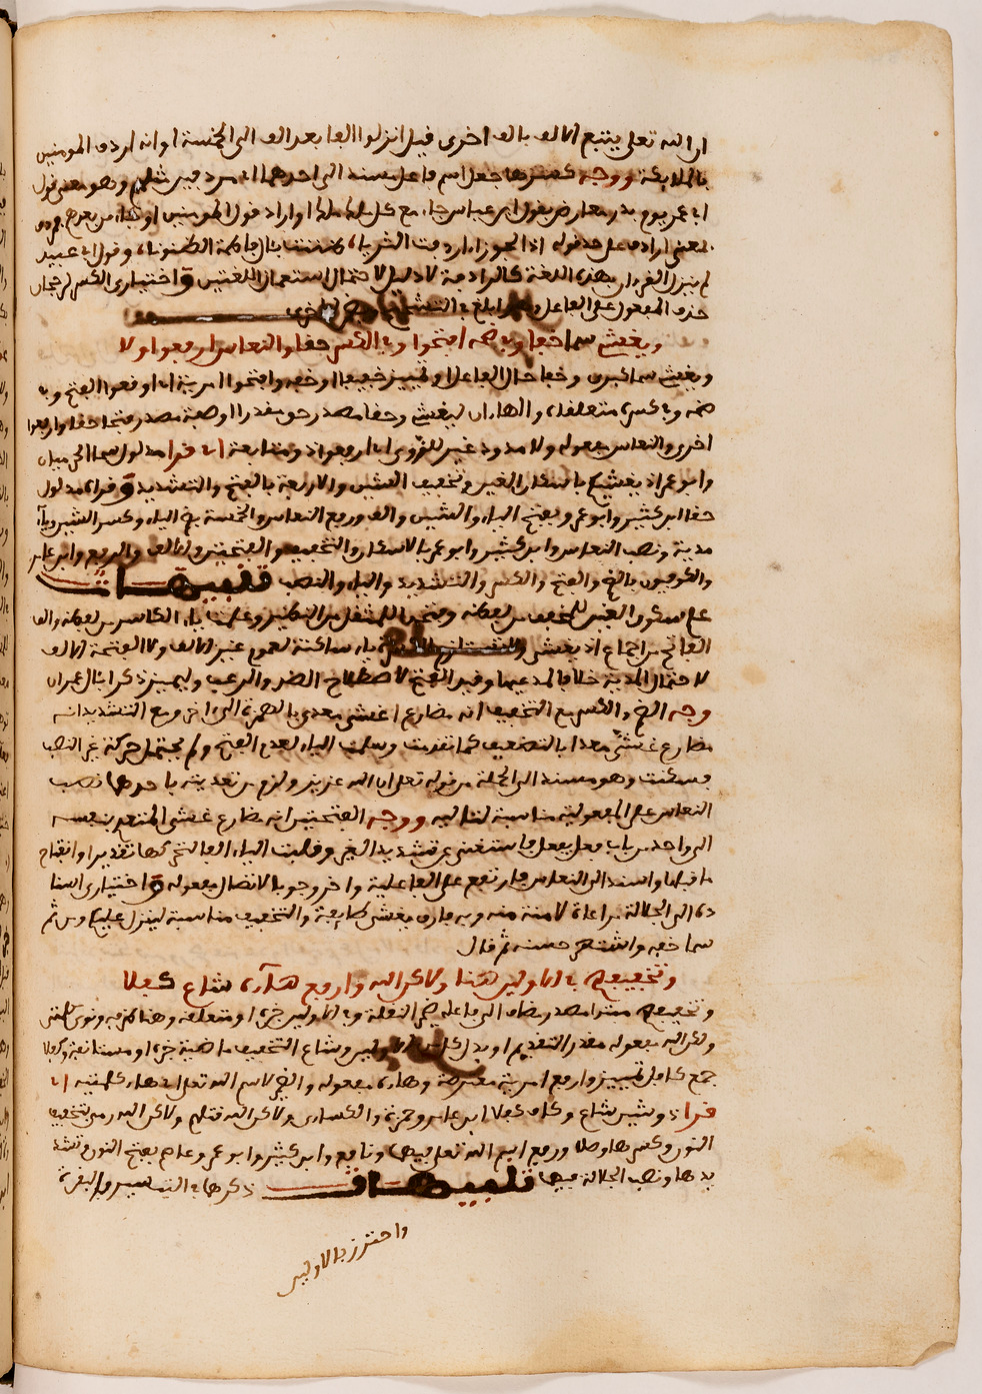 ان الله تعلى يتبع الالف بالف اخرى فيل انزلوا الفا بعد الف الى الخمسة او انه اردف المومنين
بالملايكة ووجه كسرها جعل اسم فاعل مسند الى احدهما اى مردفين مثلهم وهو معنى قول
ابى عمر يوم بدر معارض بقول ابن عباس جاء مع كل ملك ملك او اراد قول المومنين او جاء من بعدهم
المعنى ارادف على حد قوله اذا الجوزا اردفت الثريا ظننت بئال فاطمة الظنونا وقول ابى عبيد
لم ينزل القرءان بهذه اللغة كالرادفة لا دليل لاحتمال استعمال اللغتين واختيارى الكسر لرجحان
حذف المفعول على الفاعل
ويغشى سما خفا وفى ضمه افتحوا وفى الكسر حفا والنعاس ارفعوا ولا
ويغشى سما كبرى وخفا حال الفاعل او تمييز خفيفا او خفه وافتحوا امرية اى اوقعوا الفتح وفى
ضمه وفى كسره متعلفاه والهاءان ليغشى وحفا مصدر حق مقدر او صفة مصدر فتحا حفا وارفعوا
اخرى والنعاس مفعوله ولا مدود غير للفروى اى ارفعوا ذو متابعة اى قرا مدلول سما الحرميان
وابو عمر اذ يغشيكم باسكان الغين وتخفيف الشين والاربعة بالفتح والتشديد وقرا مدلول
حفا ابن كثير وابو عمر وبفتح الياء والشين والف ورفع النعاس والخمسة بضم الياء وكسر الشين وياء
مدية ونصب النعاس وابن كثير وابو عمر بالاسكان والتخفيف والفتحتين والالف والرفع وابن عامر
والكوفيون بالضم والفتح والكسر والتشديد والياء والنصب تنبيهات
علم سكون الغين للمخفف من لفظه وفتحها للمثقل من النظير وعلمت ياء الكاسر من لفظه والف
الفاتح من اجماع اذ يغشى ياء ساكنة لعموم غير الالف ولا الفتحة الالف
لاحتمال المدية خلافا لمدعيها وقيد الفتح لاصطلاح الضم والرعب وليميز ذكرا بئال عمران
وجه الضم والكسر مع التخفيف انه مضارع اغشى معدى بالهمزة الى اخر ومع التشديد انه
مضارع غشى معدا بالتضعيف كما تقدمت وسلمت الياء لعدم الفتح ولم يحتمل حركة غير النصب
فسكنت وهو مسند الى الجملة من قوله تعلى ان الله عزيز ولزم من تعديته باحدهما نصب
النعاس على المفعولية مناسبة لتاليه ووجه الفتحتين انه مضارع غشى المتعدى بنفسه
الى واحد من باب فعل يفعل فاستغنى عن تشديد الغير وقلبت الياء الفا لتحركها تقديرا وانفتاح
ما قبلها واسند الى النعاس فارتفع على الفاعلية واخر وجوبا لاتصال مفعوله واختيارى اسنا
ده الى الجلالة مراعاة لامنة منه وبه فارق يغشى طايفة والتخفيف مناسبة لينزل عليكم ومن ثم
سما خفه واشتهر حسنه ثم قال
وتخفيفهم فى الاولين هنا ولاكن الله وارفع هاءه شاع كفلا
وتخفيفهم مبتدا مصدر مضاف الى فاعله ضمير النقلة وفى الاولين جزء او متعلقه وهنا ظرفه ونوى كلمتى
ولكن الله مفعوله مقدر التقديم او بدل كل من الاولين وشاع التخفيف ماضية جزء او مستانفة وكفلا
جمع كافل تمييز وارفع امرية معترضة وهاءه مفعوله والضمير لاسم الله تعلى اى هاء كلمتيه اى
قرا ذو شين شاع وكاف كفلا ابن عامر وحمزة والكساءى ولاكن الله قتلهم ولاكن الله رمى بتخفيف
النون وكسرها وصلا ورفع اسم الله تعلى فيهما ونافع وابن كثير وابو عمر وعاصم بفتح النون وتشد
يدها ونصب الجلالة فيهما تنبيهات ذكرها فى التيسير فى البقرة
واحترز بالاولين